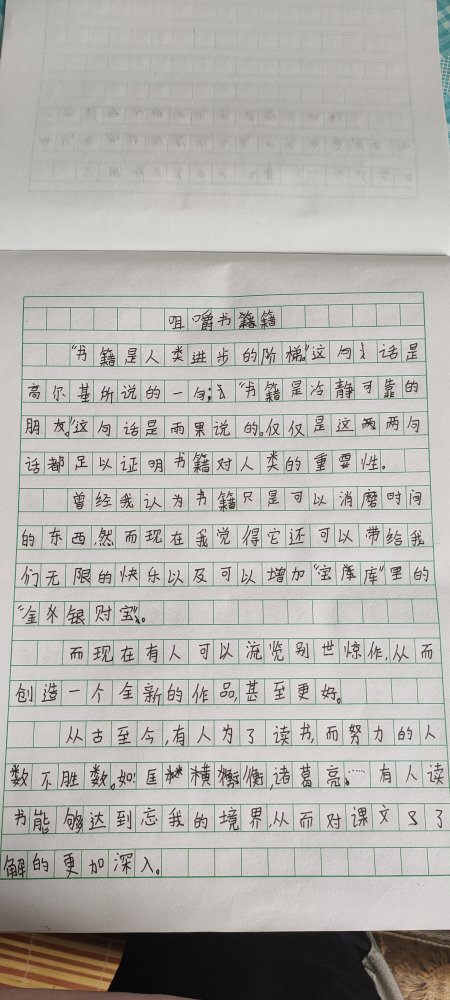 咀嚼书籍籍
“书籍是人类进步的阶梯。”这句话是
高尔基所说的一句;“书籍是冷静可靠的
朋友。”这句话是雨果说的。仅仅是这两两句
话都足以证明书籍对人类的重要性。
曾经我认为书籍只是可以消磨时间
的东西,然而现在我觉得它还可以带给我
们无限的快乐以及可以增加“宝库库”里的
“金银财宝”。
而现在有人可以流览别世惊作,从而
创造一个全新的作品,甚至更好。
从古至今,有人为了读书,而努力的人
数不胜数。如:匡横衡,诸葛亮……有人读
书能够达到忘我的境界,从而对课文了
解的更加深入。